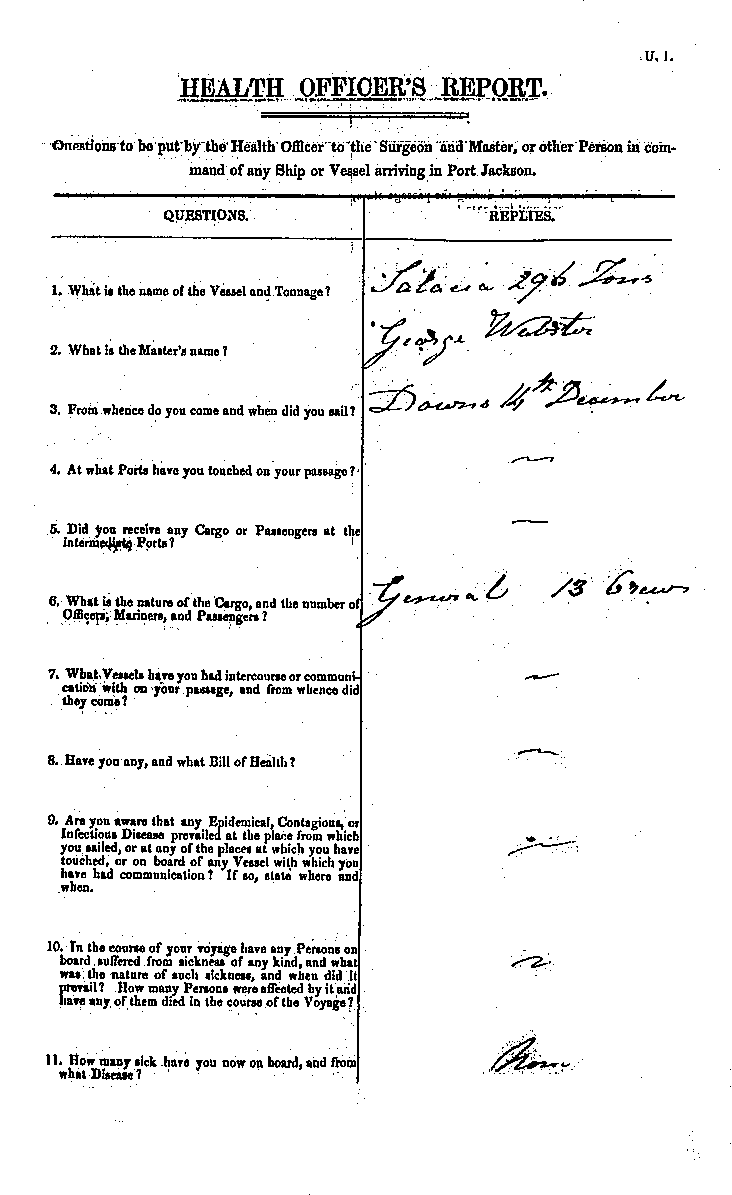 U. 1.
HEALTH OFFICER'S REPORT.
Questions to be put by the Health Officer to the Surgeon and Master, or other Person in com-
mand of any Ship or Vessel arriving in Port Jackson.
QUESTIONS.
REPLIES.
1. What is the name of the Vessel and Tonnage?
Salacia 296 Tons
2. What is the Master's name?
George Webster
3. From whence do you come and when did you sail?
Downs 14th December
4. At what Ports have you touched on your passage?
—
5. Did you receive any Cargo or Passengers at the
Intermediate Ports?
—
6. What is the nature of the Cargo, and the number of
Officers, Mariners, and Passengers?
General 13 Crews
7. What Vessels have you had intercourse or communi-
cation with on your passage, and from whence did
they come?
—
8. Have you any, and what Bill of Health?
—
9. Are you aware that any Epidemical, Contagious, or
Infectious Disease prevailed at the place from which
you sailed, or at any of the places at which you have
touched, or on board of any Vessel with which you
have had communication? If so, state where and
when.
—
10. In the course of your voyage have any Persons on
board suffered from sickness of any kind, and what
was the nature of such sickness, and when did it
prevail? How many Persons were affected by it and
have any of them died in the course of the Voyage?
—
11. How many sick have you now on board, and from
what Disease?